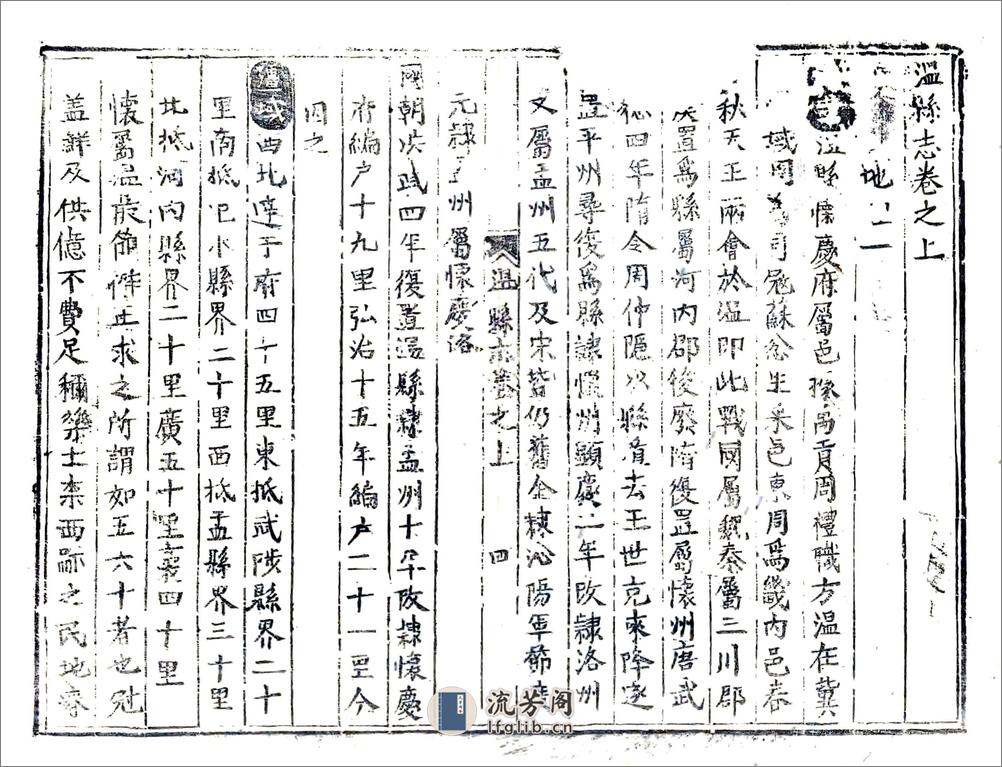 溫縣志卷之上
地
溫縣懷慶府屬邑按禹貢周禮職方溫在冀
域周司寇蘇忿生采邑東周爲畿內邑春
秋天王兩會於溫即此戰國屬魏秦屬三川郡
漢置爲縣屬河內郡後廢隋復置屬懷州唐武
德四年隋令周仲隱以縣背去王世充來降遂
置平州尋復爲縣隸懷州顯慶二年改隸洛州
又屬孟州五代及宋皆仍舊金隸沁陽軍節度
溫縣志卷之上 四
元隸孟州屬懷慶洛
國朝洪武四年復置溫縣隸孟州十年改隸懷慶
府編户十九里弘治十五年編户二十一里今
因之
西北逹于府四十五里東抵武陟縣界二十
里南抵汜水縣界二十里西抵孟縣界三十里
北抵河內縣界二十里廣五十里袤四十里
懷屬溫最節體正求之所謂如五六十者也冠
盖鮮及供億不費足稱樂土柰西之民地
流芳阁
lfglib.com